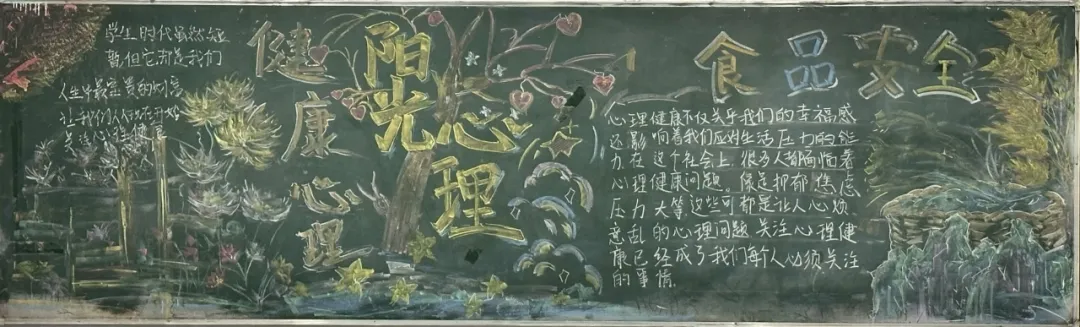 学生时代虽然短
暂,但它却是我们
人生中最宝贵的时富
让我们从现在开始
关注心理健康
健康心理
阳光心理
食品安全
心理健康不仅关乎我们的幸福感
还影响着我们应对生活压力的能
力在这个社会上,很多人都面临着
心理健康问题。像是抑郁 焦虑
压力大等,这些可都是让人心烦
意乱的心理问题 关注心理健
康已经成了我们每个人必须关注
的事情.